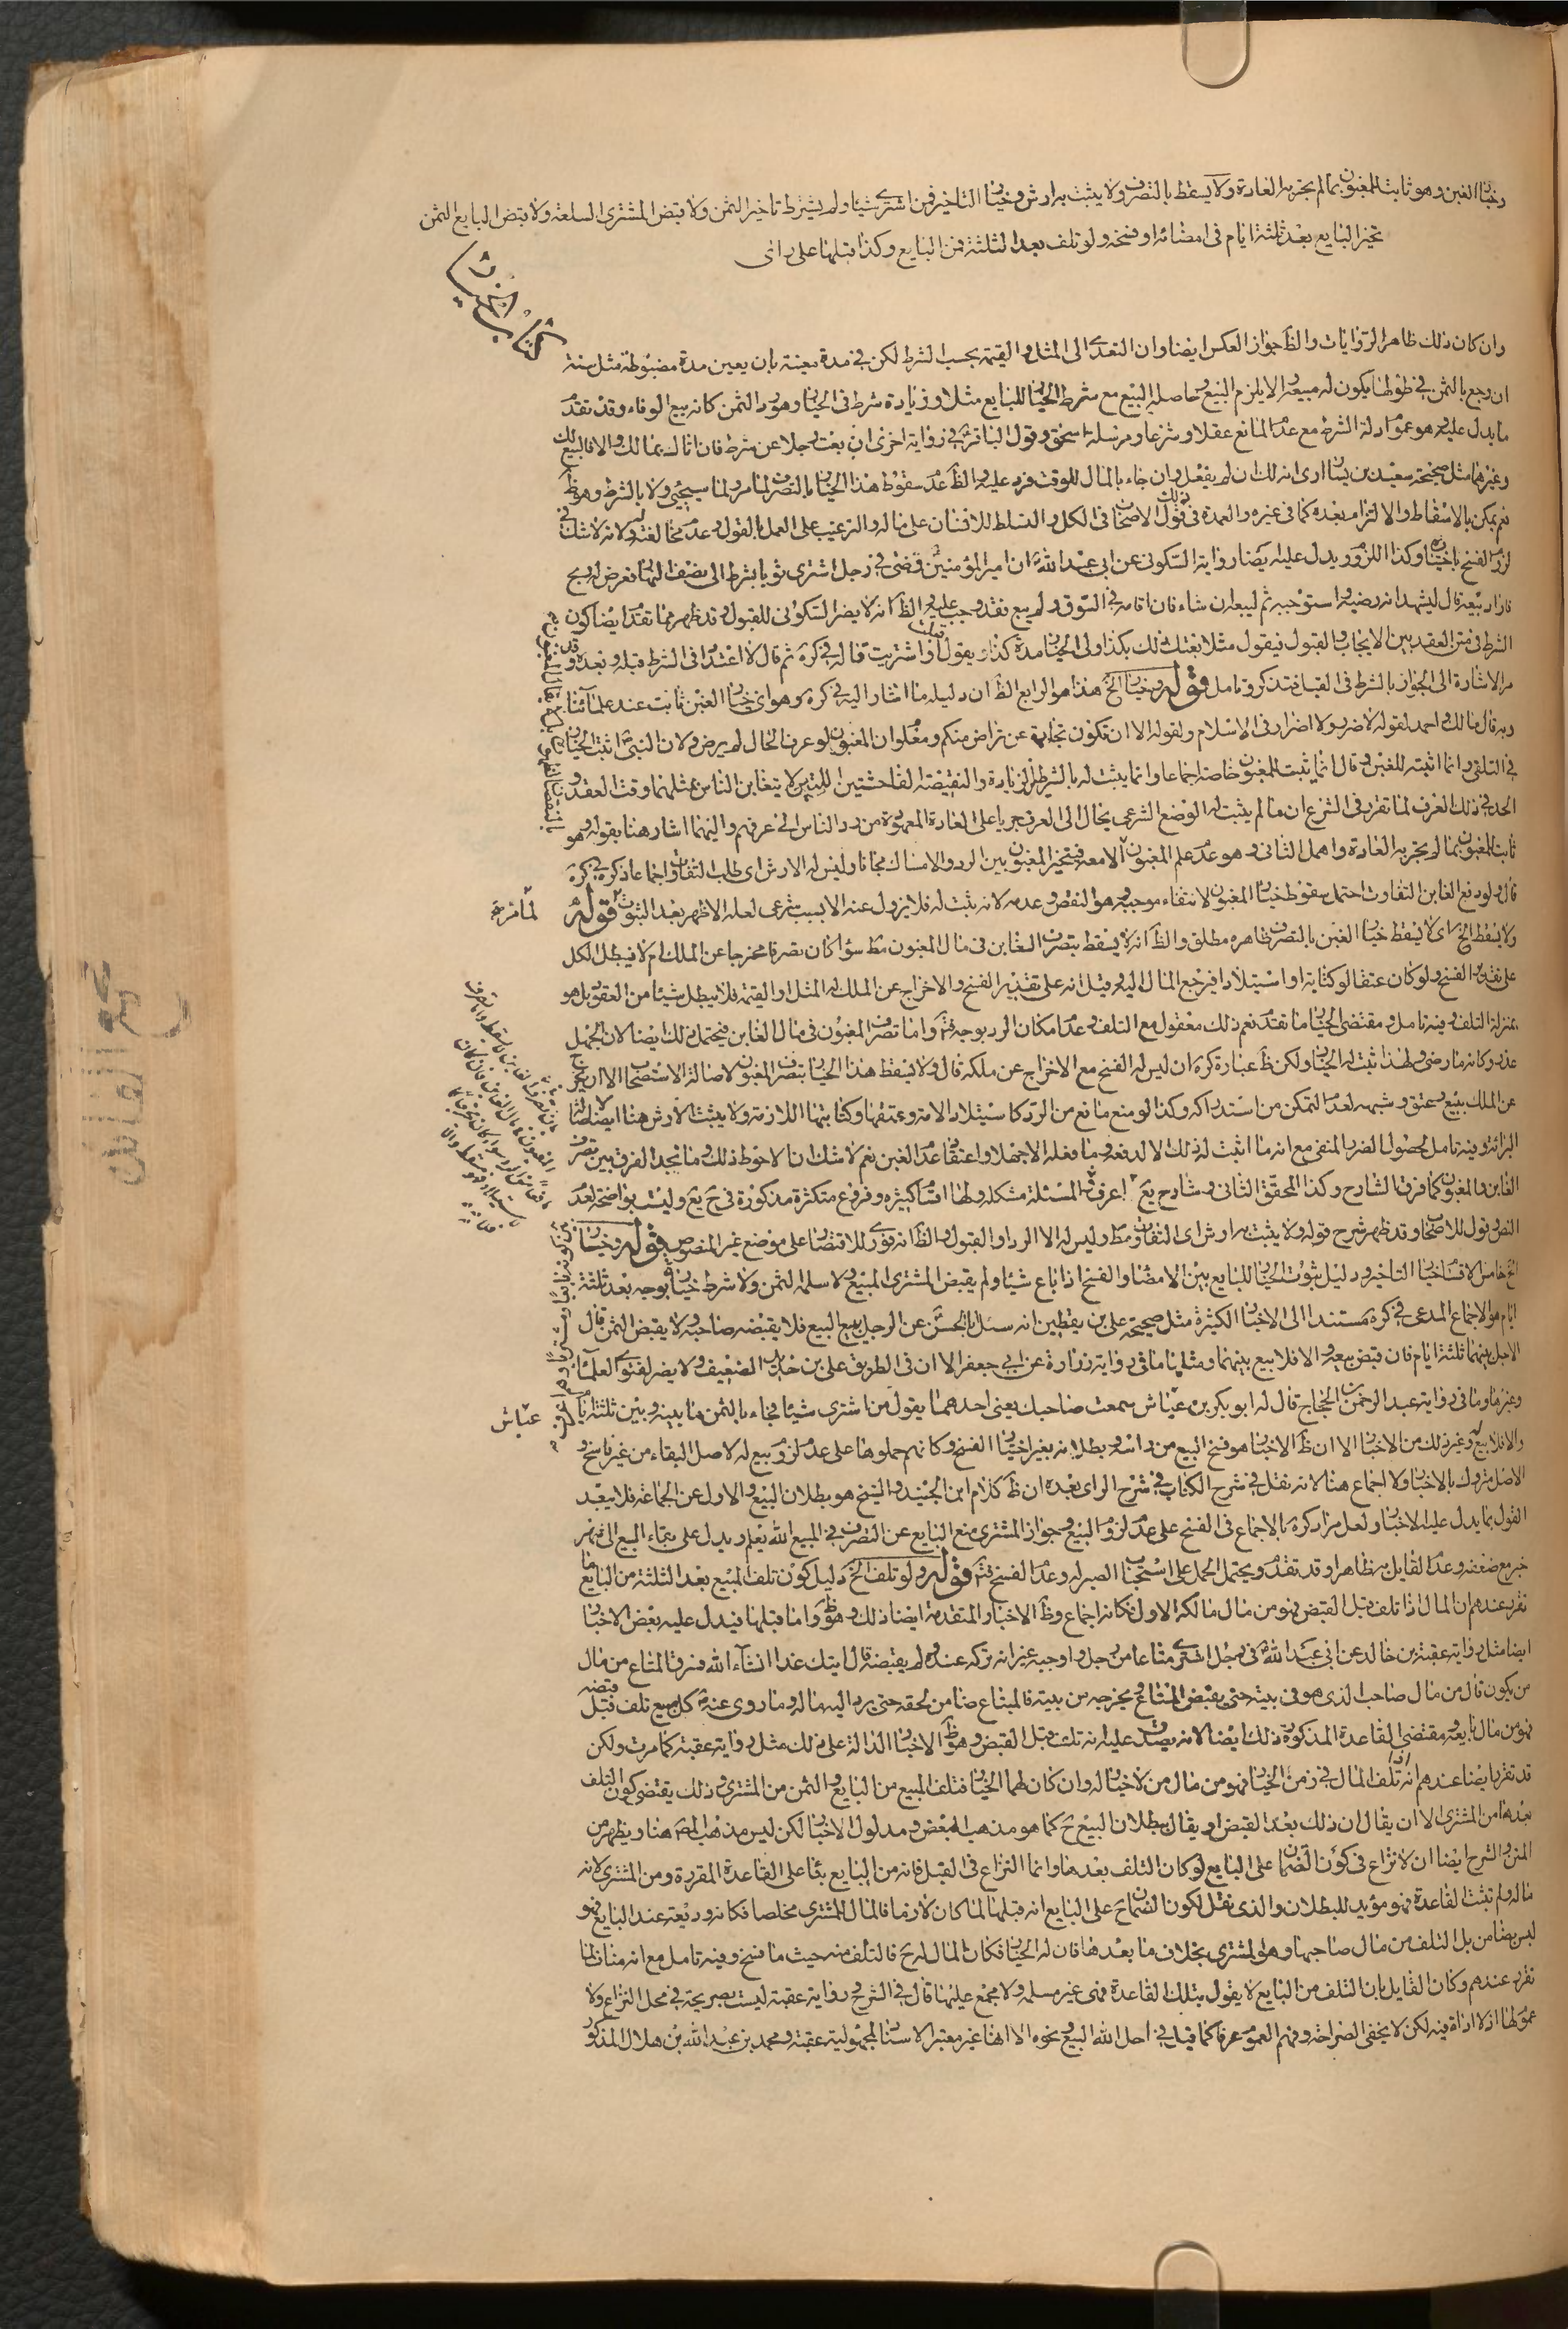 وخيار الغبن وهو ثابت للمغبون بما لم يجر به العادة ولا يسقط بالتصرف ولا يثبت به ارش وخيار التاخير فمن اشترى شيئا ولم يشترط تاخير الثمن ولا قبض المشترى السلعة ولا قبض البايع الثمن
تخير البايع بعد ثلثة ايام فى امضائه او فسخه ولو تلف بعد الثلثة فمن البايع وكذا قبلها على راى
كتاب
وان كان ذلك ظاهر الروايات والظ جواز العكس ايضا وان التعدى الى المثل والقيمة بحسب الشرط لكن فى مدة معينة بان يعين مدة مضبوطة مثل سنة
ان رجع بالثمن فى طولها يكون له مبيعه والا يلزم البيع وحاصله البيع مع شرط الخيار للبايع مثلا وزيادة شرط فى الخيار وهو رد الثمن كانه بيع الوفاء وقد تقدم
ما يدل عليه وهو عموم ادلة الشرط مع عدم المانع عقلا وشرعا ومرسلة اسحق وقول الباقر فى رواية اخرى ان بعت رجلا على شرط فان اتاك بمالك والا فالبيع لك
وغيرها مثل صحيحة سعيد بن يسار ارى انه لك ان لم يفعل وان جاء بالمال للوقت فرد عليه والظ عدم سقوط هذا الخيار بالتصرف لما مر ولما سيجئ ولا بالشرط وهو ظ
نعم يمكن بالاسقاط والالتزام بعده كما فى غيره والعمدة فى ذلك قول الاصحاب فى الكل والتسلط للانسان على ماله والترغيب على العمل بالقول وعدم مخالفته ولانه لا شك فى
لزوم الفسخ باختياره وكذا اللزوم ويدل عليه ايضا رواية السكونى عن ابى عبد الله ان امير المؤمنين قضى فى رجل اشترى ثوبا بشرط الى نصف النهار فعرض له ربح
فاراد بيعه قال ليشهد انه رضيه واستوجبه ثم ليبعه ان شاء فان اقامه فى السوق ولم يبع فقد وجب عليه والظ انه لا يضر السكونى للقبول وقد ظهر مما تقدم ايضا كون
الشرط فى متن العقد بين الايجاب والقبول فيقول مثلا بعتك ذلك بكذا ولى الخيار مدة كذا ويقول اشتريت قاله فى كره ثم قال لا اعتداد فى الشرط قبله وبعده وقد
مر الاشارة الى الجواز بالشرط فى القبل فتذكر وتامل قوله وخيار الخ هذا هو الرابع الظ ان دليله ما اشار اليه فى كره وهو اى خيار الغبن ثابت عند علمائنا
وبه قال مالك واحمد لقوله لا ضرر ولا اضرار فى الاسلام ولقوله الا ان تكون تجارة عن تراض منكم ومعلوم ان المغبون لو عرف الحال لم يرض ولان النبى اثبت الخيار
فى التلقى وانما اثبته للغبن وقال انما يثبت للمغبون خاصة اجماعا وانما يثبت له بالشرطين الزيادة والنقيصة الفاحشتين اللتين لا يتغابن الناس بمثلهما وقت العقد و
الحد فى ذلك العرف لما تقرر فى الشرع ان ما لم يثبت له الوضع الشرعى يحال الى العرف جريا على العادة المعهودة من رد الناس الى عرفهم واليهما اشار هنا بقوله وهو
ثابت للمغبون بما لم يجر به العادة واهمل الثانى وهو عدم علم المغبون الا معه فيتخير المغبون بين الرد والامساك مجانا وليس له الارش اى طلب التفاوت اجماعا ذكره فى كره
قال ولو دفع الغابن التفاوت احتمل سقوط خيار المغبون لانتفاء موجبه وهو النقص وعدمه لانه يثبت له فلا يزول عنه الا بسبب شرعى لعله الاظهر بعد الثبوت قوله
ولا يسقط الخ اى لا يسقط خيار الغبن بالتصرف ظاهره مطلق والظ انه لا يسقط بتصرف الغابن فى مال المغبون مط سواء كان تصرفا مخرجا عن الملك ام لا فيبطل الكل
على تقدير الفسخ ولو كان عتقا او كتابة او استيلادا فيرجع المال اليه وقيل انه على تقدير الفسخ والاخراج عن الملك له المثل او القيمة فلا يبطل شيئا من العقود بل هو
بمنزلة التلف وفيه تامل ومقتضى الخيار ما تقدم نعم ذلك معقول مع التلف وعدم امكان الرد بوجه فتم واما تصرف المغبون فى مال الغابن فيحتمل ذلك ايضا لان الجهل
عذر وكانه ما رضى ولهذا ثبت له الخيار ولكن ظ عبارة كره ان ليس له الفسخ مع الاخراج عن ملكه قال ولا يسقط هذا الخيار بتصرف المغبون لاصالة الاستصحاب الا ان يخرج
عن الملك ببيع وعتق وشبهه لعدم التمكن من استدراكه وكذا لو منع مانع من الرد كاستيلاد الامة وعتقها وكتابتها اللازمة ولا يثبت الارش هنا ايضا لاصالة
البرائة وفيه تامل لحصول الضرر المنفى مع انه ما اثبت له ذلك الا لدفعه وما فعله الا جهلا واعتقاد عدم الغبن نعم لا شك ان الاحوط ذلك وما نجد الفرق بين تصرف
الغابن والمغبون كما فرق الشارح وكذا المحقق الثانى وشارح يع اعرف المسئلة مشكلة ولها اقسام كثيرة وفروع متكثرة مذكورة فى ح يع وليست بواضحة لعدم
النص وقول للاصحاب وقد ظهر شرح قوله ولا يثبت به ارش اى التفاوت مط وليس له الا الرد او القبول والظ انه فورى للاقتصار على موضع غير المنصوص قوله وخيار
الخ خامس الاقسام خيار التاخير ودليل ثبوت الخيار للبايع بين الامضاء والفسخ اذا باع شيئا ولم يقبض المشترى المبيع ولا سلم الثمن ولا شرط خيار بوجه بعد ثلثة
ايام هو الاجماع المدعى فى كره مستندا الى الاخبار الكثيرة مثل صحيحة على بن يقطين انه سئل ابا الحسن عن الرجل يبيع البيع فلا يقبضه صاحبه ولا يقبض الثمن قال
الاجل بينهما ثلثة ايام فان قبض بيعه والا فلا بيع بينهما ومثلها ما فى رواية زرارة عن ابى جعفر الا ان فى الطريق على بن حديد الضعيف ولا يضر لفتوى العلماء
وغيرها وما فى رواية عبد الرحمن بن الحجاج قال له ابو بكر بن عياش سمعت صاحبك يعنى احدهما يقول من اشترى شيئا فجاء بالثمن ما بينه وبين ثلثة ايام
والا فلا بيع له وغير ذلك من الاخبار الا ان ظ الاخبار هو فسخ البيع من راسه وبطلانه بغير اختيار الفسخ وكانهم حملوها على عدم لزوم بيع له لاصل البقاء من غير ناسخ و
الاصل متروك بالاخبار ولا اجماع هنا لانه نقل فى شرح الكتاب فى شرح الراى بعده ان ظ كلام ابن الجنيد والشيخ هو بطلان البيع والاول عن الجماعة فلا يبعد
القول بما يدل عليه الاخبار ولعل مراد كره بالاجماع فى الفسخ على عدم لزوم البيع وجواز المشترى منع البايع عن التصرف فى المبيع الله يعلم ويدل على بقاء البيع الى شهر
خبر مع ضعفه وعدم القايل به ظاهرا وقد تقدم ويحتمل الحمل على استحباب الصبر له وعدم الفسخ فتم قوله ولو تلف الخ دليل كون تلف المبيع بعد الثلثة من البايع ما
تقرر عندهم ان المال اذا تلف قبل القبض فهو من مال مالكه الاول فكانه اجماع وظ الاخبار المتقدمة ايضا ذلك وهو ظ واما قبلها فيدل عليه بعض الاخبار
ايضا مثل رواية عقبة بن خالد عن ابى عبد الله فى رجل اشترى متاعا من رجل واوجبه غير انه تركه عنده ولم يقبضه قال اتيك غدا انشاء الله فسرق المتاع من مال
من يكون قال من مال صاحب الذى هو فى بيته حتى يقبض المتاع ويخرجه من بيته فالمبتاع ضامن لحقه حتى يرد اليه ماله وما روى عنه كل مبيع تلف قبل قبضه
فهو من مال بايعه ومقتضى القاعدة المذكورة ذلك ايضا لانه يصدق عليه انه تلف قبل القبض وهو ظ الاخبار الدالة على ذلك مثل رواية عقبة كما مرت ولكن
قد تقرر ايضا عندهم انه اذا تلف المال فى زمن الخيار فهو من مال من لا خيار له وان كان لهما الخيار فتلف المبيع من البايع والثمن من المشترى وذلك يقتضى كون التلف
بعدها من المشترى الا ان يقال ان ذلك بعد القبض او يقال ببطلان البيع ح كما هو مذهب البعض ومدلول الاخبار لكن ليس مذهب المص هنا ويظهر من
المتن والشرح ايضا ان لا نزاع فى كون الضمان على البايع لو كان التلف بعدها وانما النزاع فى القبل فانه من البايع بناء على القاعدة المقررة ومن المشترى لانه
ماله ولم تثبت القاعدة فهو مؤيد للبطلان والذى نقل لكون الضمان ح على البايع انه قبلها لما كان لازما فالمال للمشترى مخلصا فكانه وديعة عند البايع فهو
ليس بضامن بل التلف من مال صاحبها وهو المشترى بخلاف ما بعدها فان له الخيار فكان المال له ح فالتلف منه حيث ما فسخ وفيه تامل مع انه مناف لما
تقرر عندهم وكان القايل بان التلف من البايع لا يقول بتلك القاعدة فهى غير مسلمة ولا مجمع عليها قال فى الشرح رواية عقبة ليست بصريحة فى محل النزاع ولا
عموم لها اذ لا اداة فيه لكن لا يخفى الصراحة وفهم العموم عرفا كما قيل فى احل الله البيع ونحوه الا انها غير معتبر الاسناد لمجهولية عقبة ومحمد بن عبد الله بن هلال المذكور
عياش